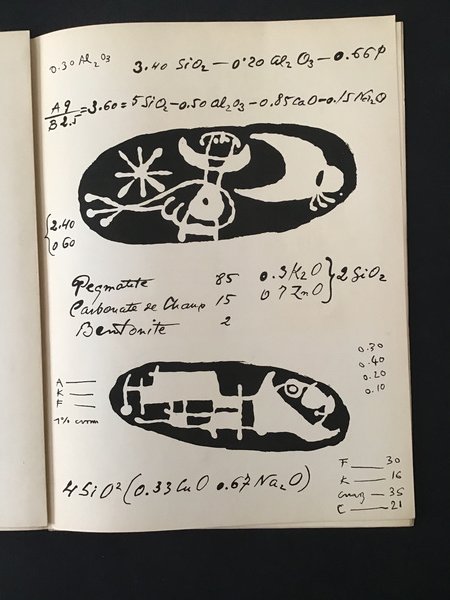 0.30 Al2O3
3.40 SiO2 — 0.20 Al2O3 — 0.66 P
A 9 / B 2.5 = 3.60 = 5 SiO2 — 0.50 Al2O3 — 0.85 CaO — 0.15 Na2O
{ 2.40
0.60
Pegmatite 85 0.3 K2O } 2 SiO2
Carbonate de Chaux 15 0.7 ZnO
Bentonite 2
0.30
0.40
0.20
0.10
A —
K —
F —
1%
4 SiO2 (0.33 CuO 0.67 Na2O)
F — 30
K — 16
— 35
C — 21